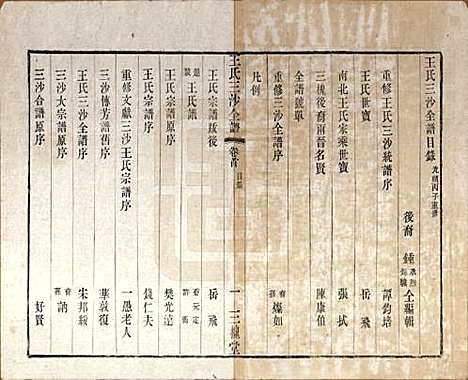 王氏三沙全譜目錄 光緒丙子重修
後裔 鍾 承烈 全編輯
重修王氏三沙統譜序 譚鈞培
王氏世寶 岳飛
南北王氏宗乘世寶 張栻
三槐後裔甫晉名賢 陳康伯
全譜號單
重修三沙全譜序 裔燦如
凡例
王氏三沙全譜 卷首 目錄 一 三槐堂
王氏宗譜跋後 岳飛
王氏譜
王氏宗譜原序 樊光遠
王氏宗譜序 錢仁夫
重修文獻三沙王氏宗譜序 一愚老人
三沙傳芳譜舊序 華敦復
王氏三沙全譜序 宋邦綏
三沙大宗譜原序 裔訥
三沙合譜原序 好賢